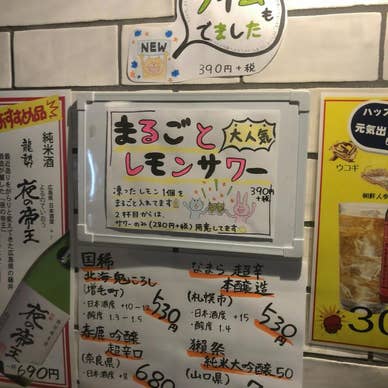 ライムも
でました
NEW
390円+税
まるごと
大人気
レモンサワー
390円
+税
凍ったレモン1個を
まるごと入れてます
2杯目からは、
サワーのみ(290円+税)用意してます
おすすめ品
純米酒
龍勢
夜の帝王
広島県 日本酒度
夜の帝王
690円
国稀
北海鬼ころし
(増毛町)
・日本酒度 +10~
・酸度 1.3~1.5
530円
なまら超辛
本醸造
(札幌市)
・日本酒度 +15
・酸度 1.4
530円
春鹿 吟醸
超辛口
(奈良県)
・日本酒度
680
獺祭
純米大吟醸50
(山口県)
ハッス
元気出
ウコギ
朝鮮人参
30